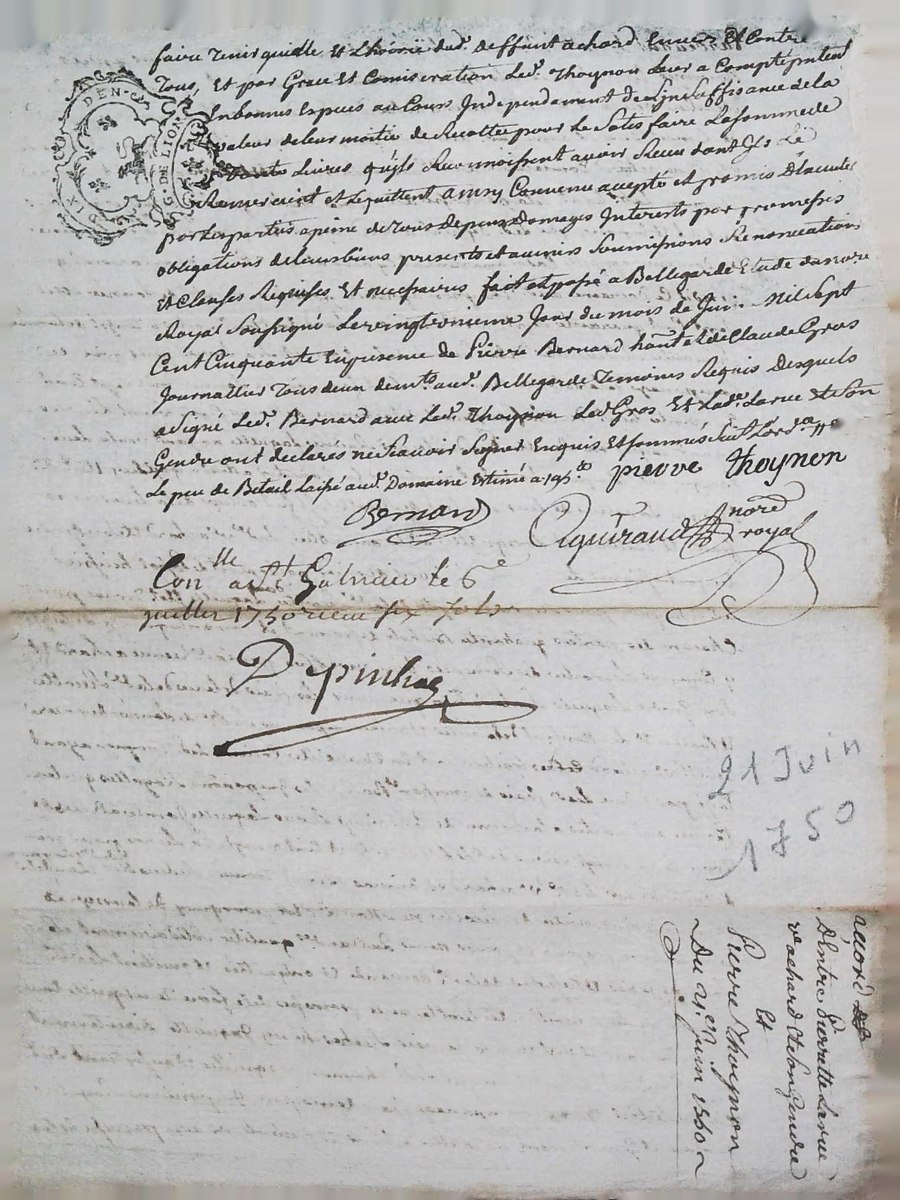 faire tenir quitte et l'hoirie dud. deffunt achard envers et contre
Tous, Et par Grace Et Comiseration Led. Thoynon Leur a Compté pntent
En bonnes Especes au Cours Independament de l'Insuffisance de la
valeur de leur moitié de Recolte pour Le Satisfaire La somme de
livres qu'ils Reconnoissent avoir Receu dont Ils Le
Remercient et Lequittent ainsy Convenu accepté et promis D'Executer
par Les parties a peine de Tous Depens Domages Interests par promesses
obligations de leurs biens presents et avenirs Soumissions Renonciations
Et Clauses Requises Et necessaires fait et passé a Bellegarde Etude du nore
Royal Soussigné Le vingt unieme Jour du mois de Juin Mil Sept
Cent Cinquante En presence de Pierre Bernard et de Claude Gros
Journallier Tous deux demts aud. Bellegarde Temoins Requis Desquels
a Signé Led. Bernard avec Led. Thoynon Led Gros Et Lade. Larue Et Son
Gendre ont declarés ne Scavoir Signer Enquis Et sommés
Le peu de Betail Laissé aud. Domaine Estimé a
pierre thoynon
Bernard
nore
royal
Conlle a St Galmier le 6e
juillet 1750 receu six sols
Depinhac
DEN.
G. DE LION
DIX
21 Juin
1750
accord
D'Entre Pierrette Larue
ve achard Et son Gendre
Et
Pierre Thoynon
Du 21er Juin 1750